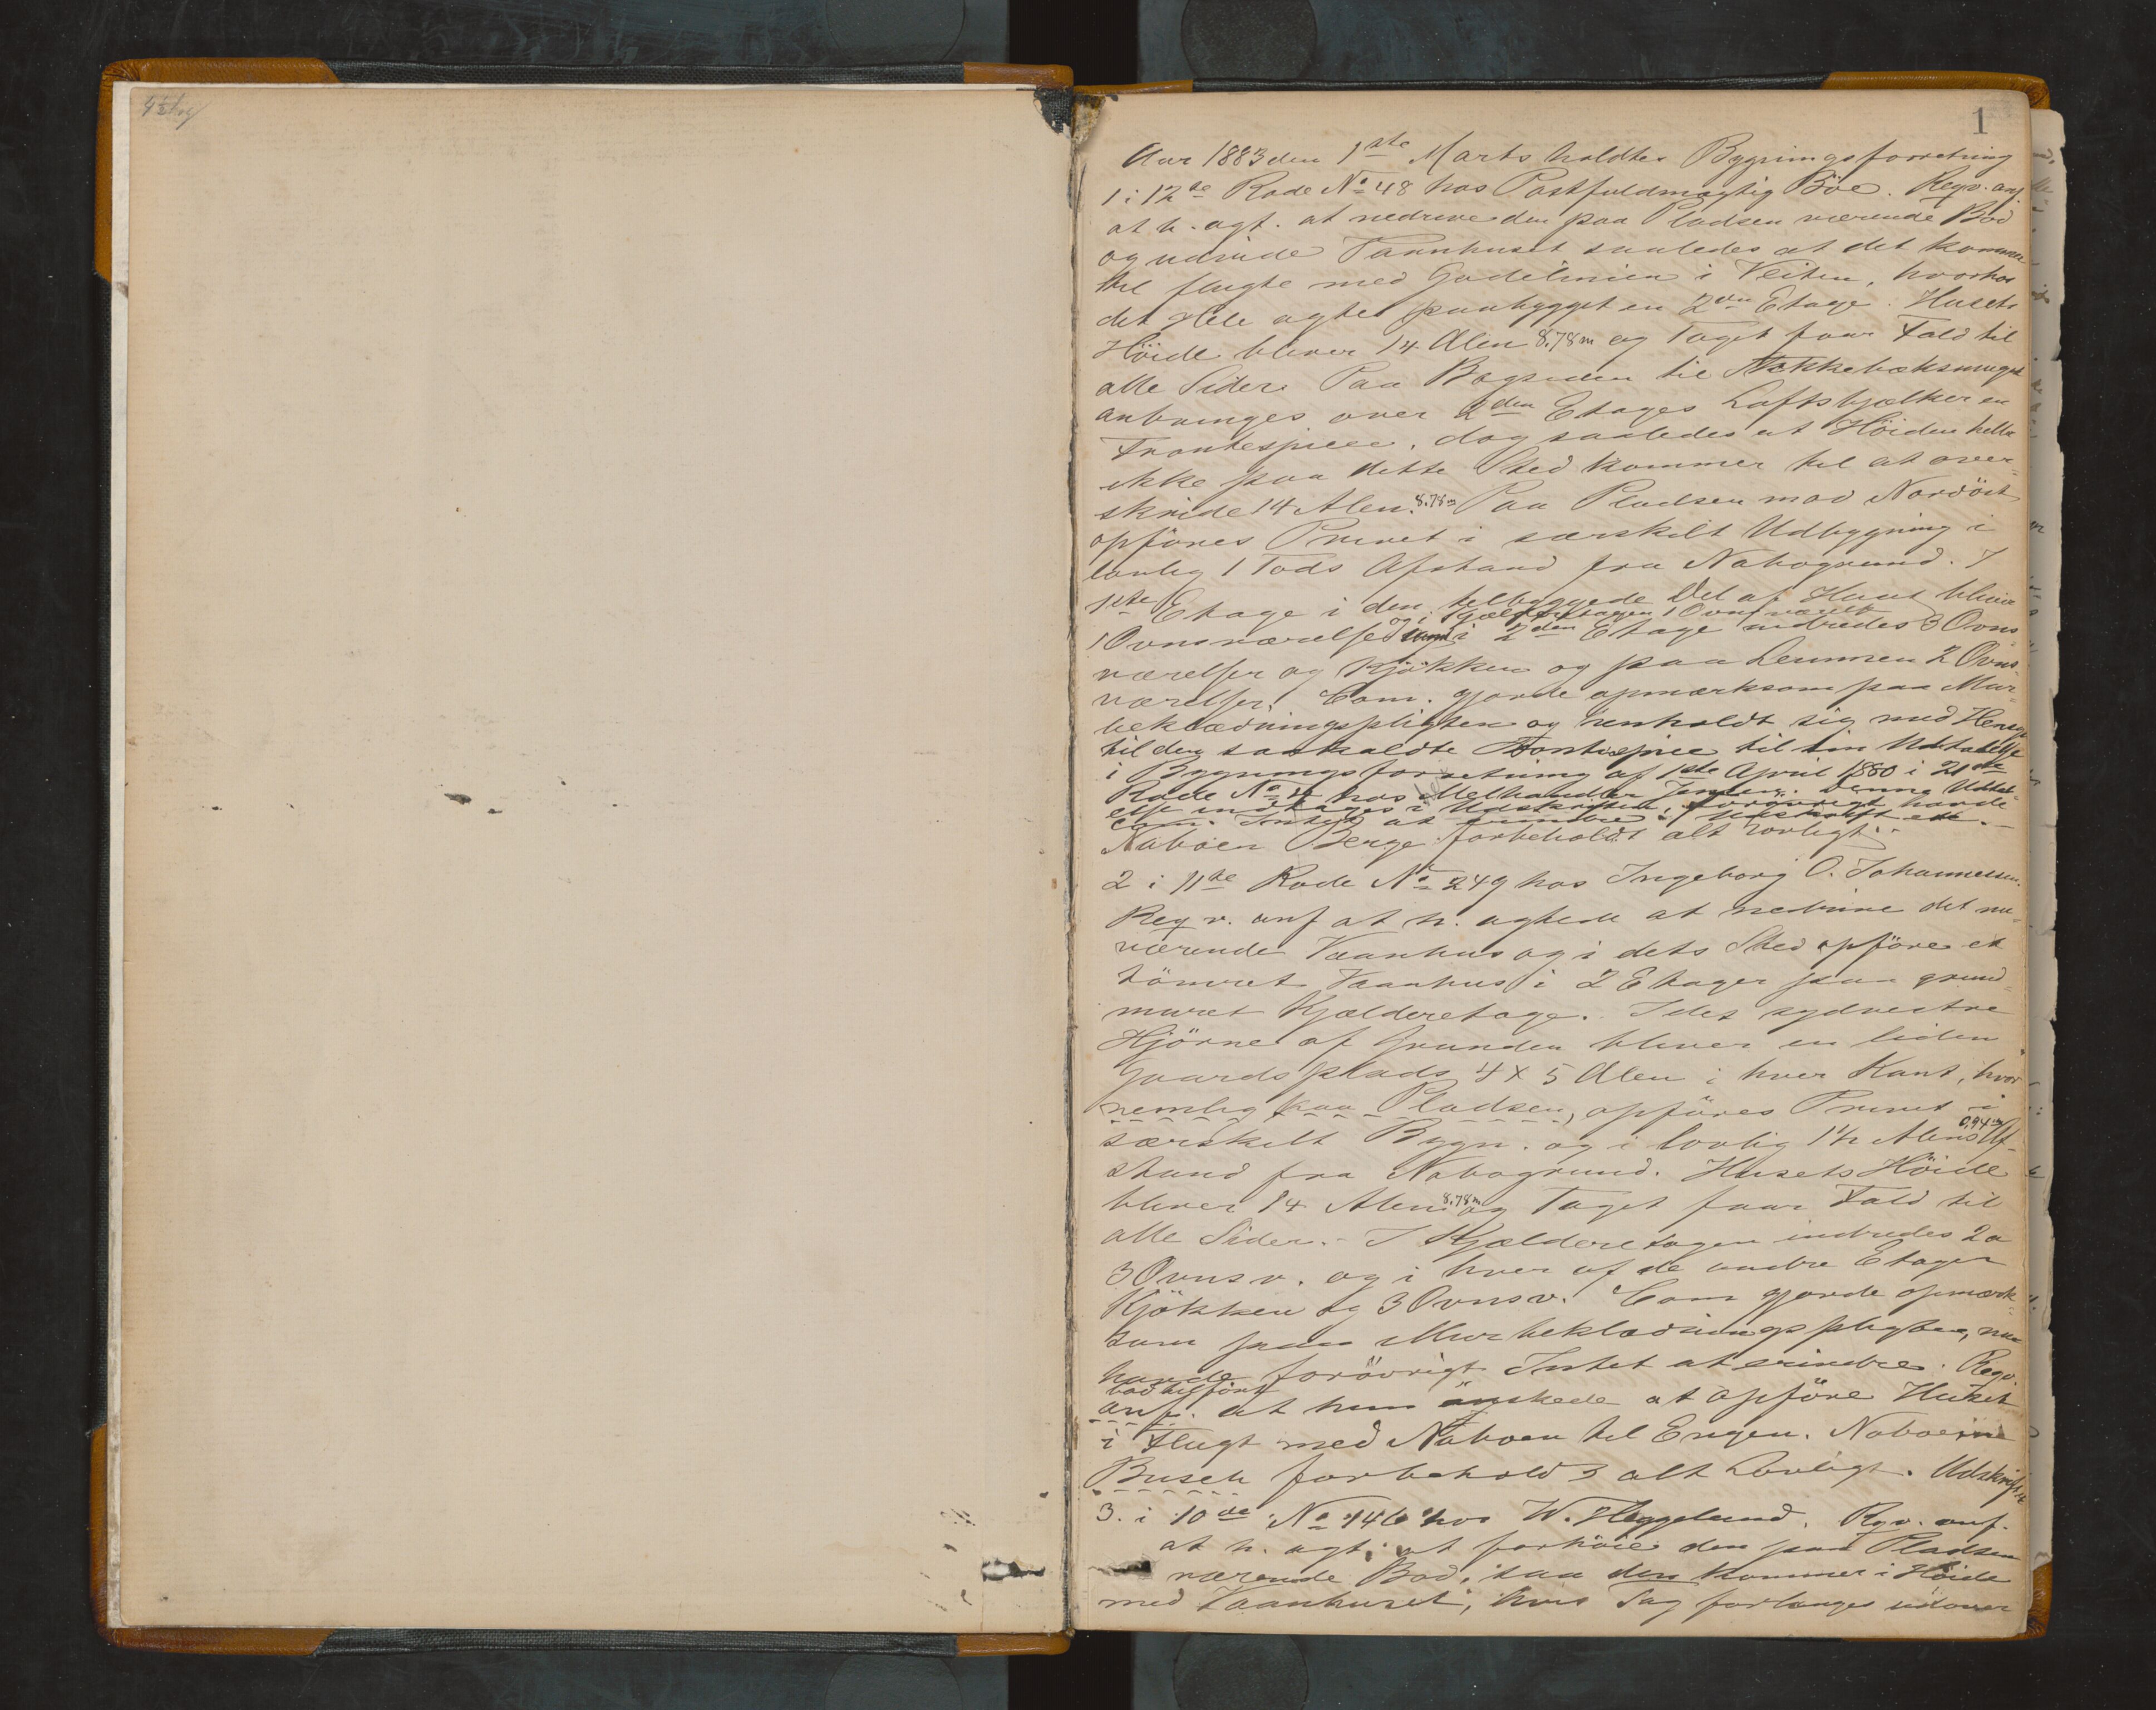 1
Aar 1883 den 1ste Marts holdtes Bygningsforretning
1 i 12te Rode No 48 hos Postfuldmægtig Böe. Reqv. anf
at h. agt. at nedrive den paa Pladsen værende Bod
og udvide Vaanhuset saaledes at det kommer
til flugte med Gadelinien i Veiten, hvorhos
det Hele agtes paabygget en 2den Etage. Husets
Höide bliver 14 Alen 8.78m og Taget faar Fald til
alle Sider. Paa Bagsiden til
anbringes over 2den Etages Loftsbjælker en
Frontespiece, dog saaledes at Höiden heller
ikke paa dette Sted kommer til at over-
skride 14 Alen. 8.78m Paa Pladsen mod Nordöst
opföres Privet i særskilt Udbygning i
lovlig 1 Fods Afstand fra Nabogrund. I
1ste Etage i den tilbyggede Del af Huset bliver
og i Kjælderetagen 1 Ovnsværelse
1 Ovnsværelse samt i 2den Etage indredes 3 Ovns-
værelser og Kjökken og paa Lemmen 2 Ovns-
værelser. Com. gjorde opmærksom paa Mur-
beklædningspligten og henholdt sig med Hensyn
til den saakaldte Frontespiece til sin Udtalelse
i Bygningsforretning af 1ste April 1880 i 21de
Rode No hos Melhandler Jensen. Denne Udtal-
else indtages i Udskriften, forövrigt havde
Com. Intet at erindre. Udskrift
Naboen Berge forbeholdt alt lovligt.
2 i 11te Rode No 249 hos Ingeborg O. Johannessen.
Reqv. anf at h. agtede at nedrive det nu-
værende Vaanhus og i dets Sted opföre et
tömret Vaanhus i 2 Etager paa grund-
muret Kjælderetage. I det sydvestre
Hjörne af Grunden bliver en liden
Gaardsplads 4 x 5 Alen i hver Kant, hvor
nemlig paa Pladsen, opföres Privet i
særskilt Bygn. og i lovlig 1½ Alens 0.94m Af-
stand fra Nabogrund. Husets Höide
bliver 14 Alen 8.78m og Taget faar Fald til
alle Sider. - I Kjælderetagen indredes 2 a
3 Ovnsv. og i hver af de andre Etager
Kjökken og 3 Ovnsv. Com gjorde opmærk-
som paa Murbeklædningspligten, men
havde forövrigt Intet at erindre. Reqv.
bad tilfört
anf. at hun önskede at opföre Huset
i Flugt med Naboen til Engen. Naboerne
Busch forbeholdt alt Lovligt. Udskrift
3. i 10de No 146 hos W. Heggelund. Rqv. anf.
at h. agt. at forhöie den paa Pladsen
værende Bod, saa den kommer i Höide
med Vaanhuset, hvis Tag forlænges udover